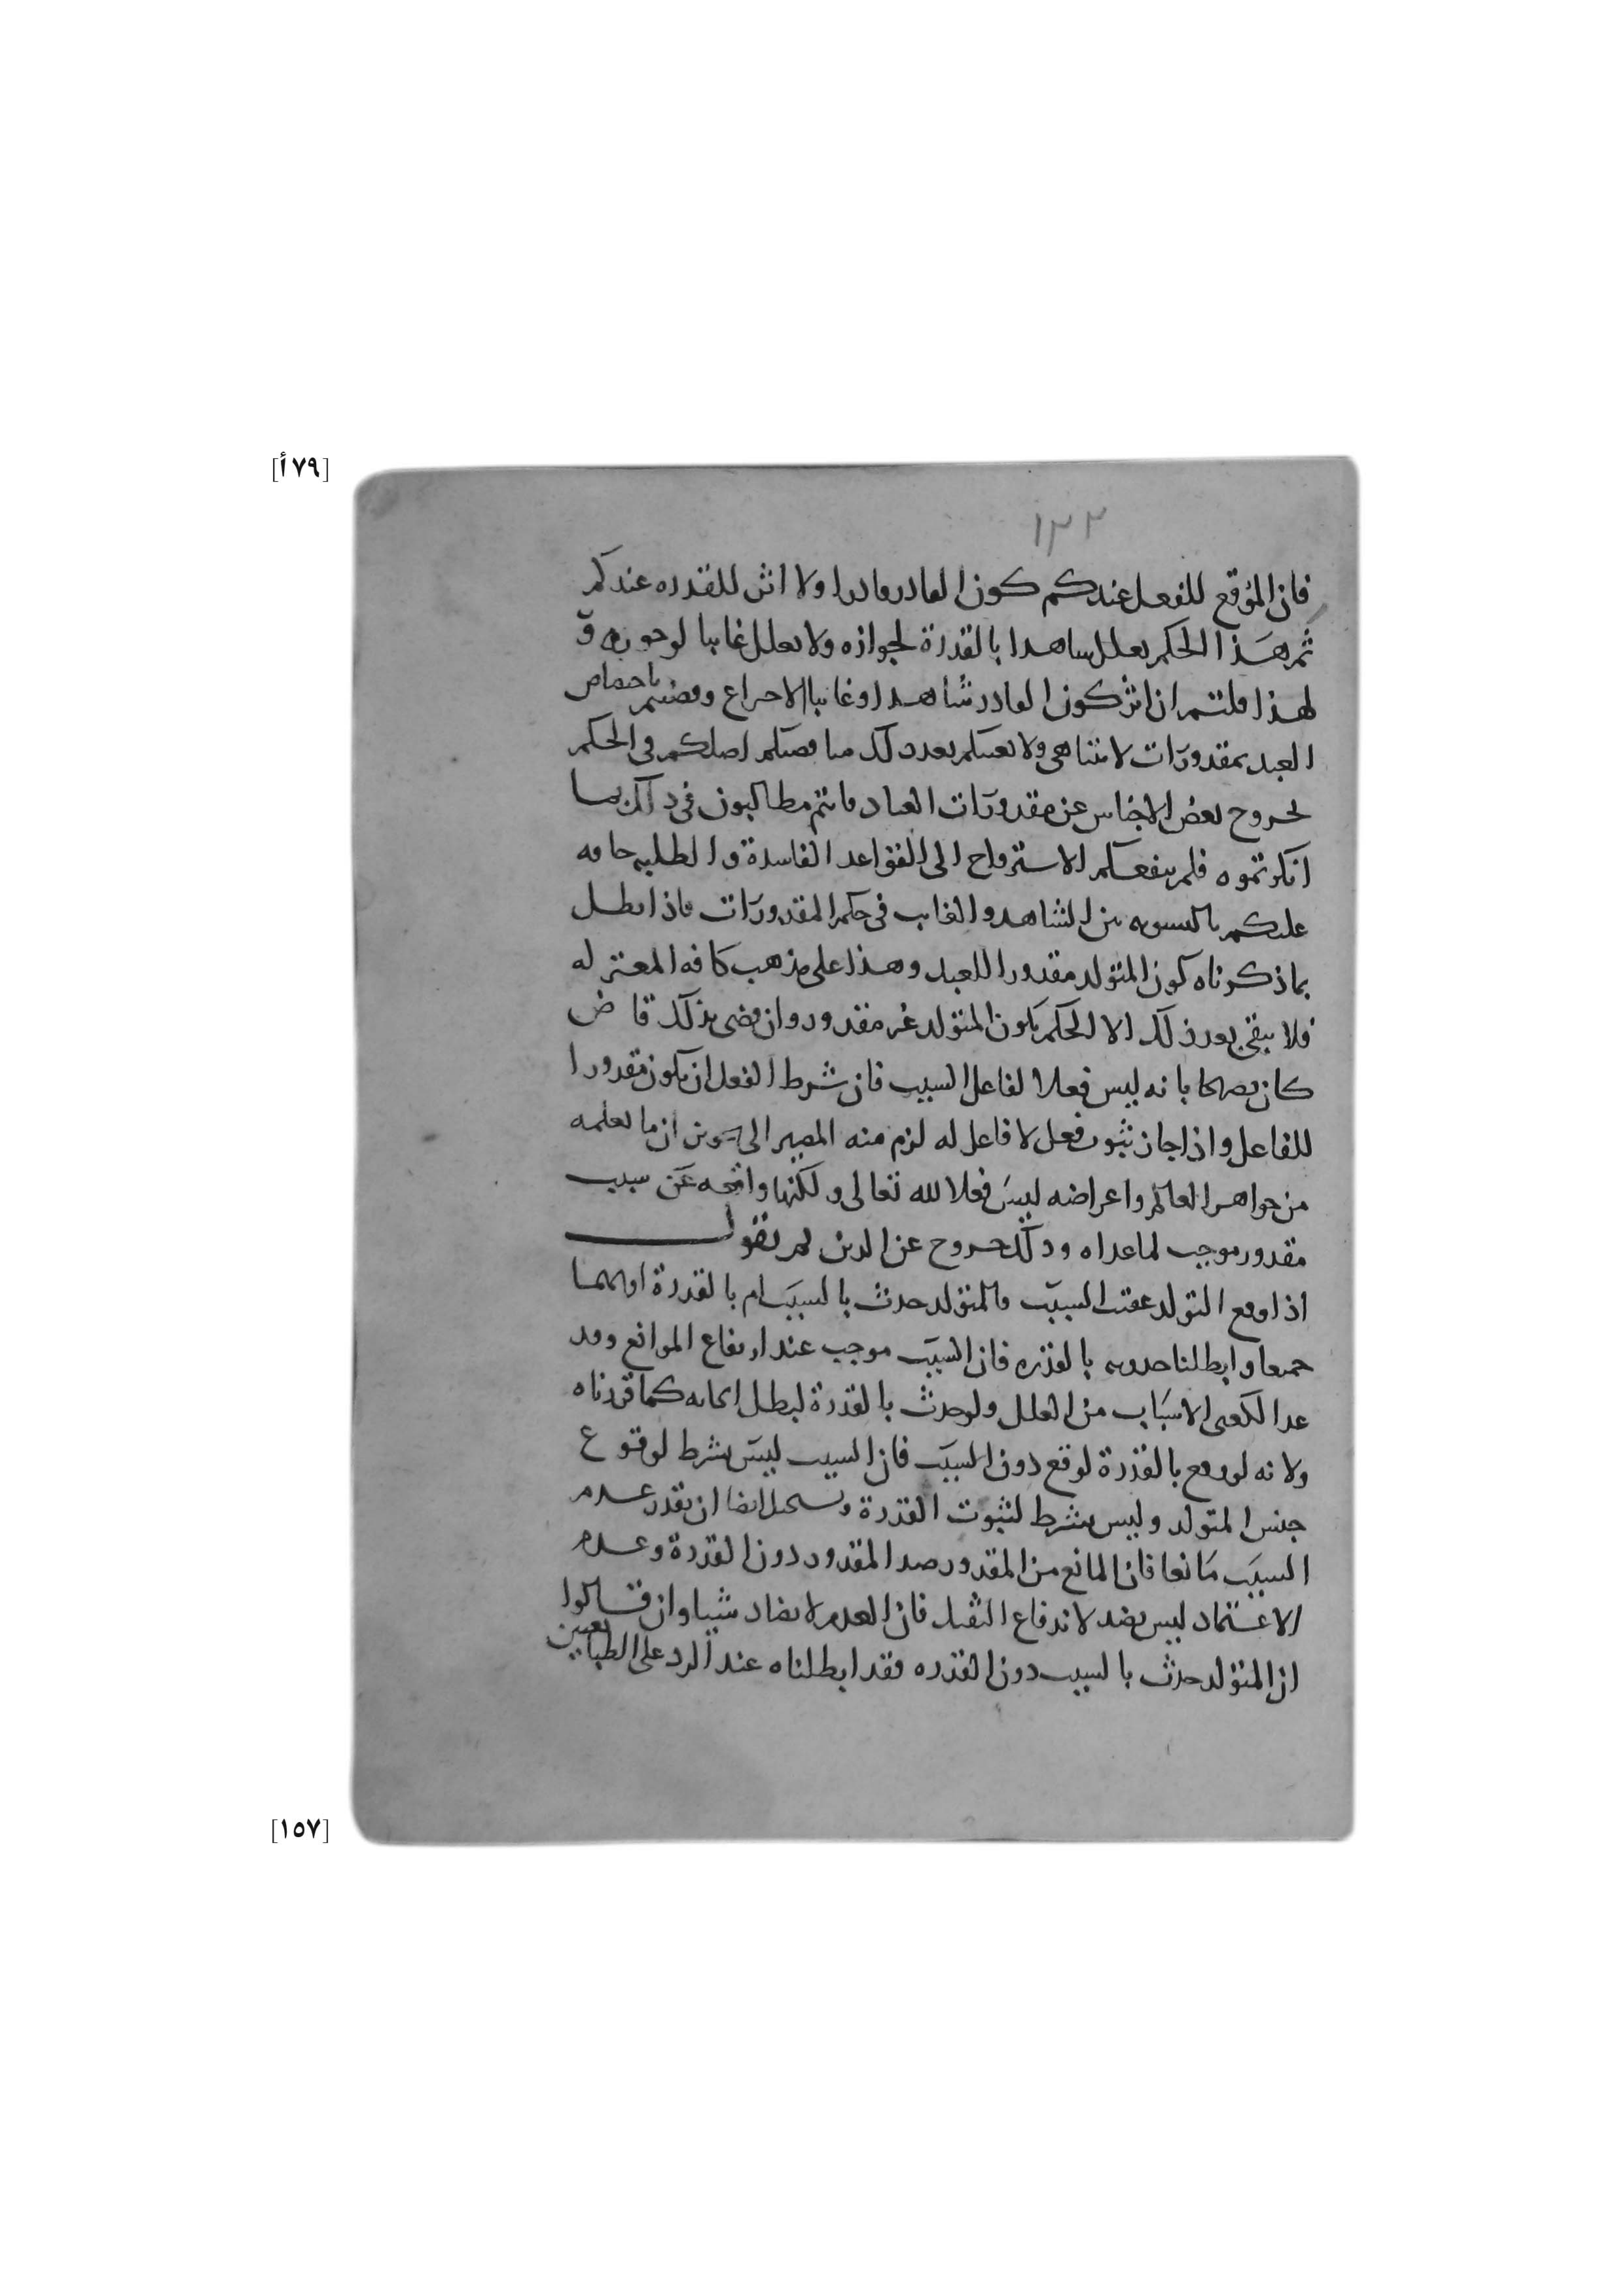 [٧٩أ]
١٣٢
فان المؤقع للفعل عندكم كون القادر قادرا ولا اثر للقدره عندكم
ثم هذا الحكم يعلل شاهدا بالقدرة لجوازه ولا يعلل غايبا لوجوبه و
لهذا قلتم ان اثر كون القادر شاهدا وغايبا الاختراع وقضيتم باختصاص
العبد بمقدورات لا تتناهى ولا ... بعد ذلك ... اصلكم في الحكم
بخروج بعض الاجناس عن مقدورات العباد فانتم مطالبون في ذلك بما
انكرتموه فلم ينفعكم الاسترواح الى القواعد الفاسدة والطلبه حاقه
عليكم بالتسويه بين الشاهد والغايب في حكم المقدورات فاذا بطل
بما ذكرناه كون المتولد مقدورا للعبد وهذا على مذهب كافه المعتزله
فلا يبقى بعد ذلك الا الحكم بكون المتولد غير مقدور وان قضى بذلك قاض
كان مصرحا بانه ليس فعلا لفاعل السبب فان شرط الفعل ان يكون مقدورا
للفاعل واذا جاز ثبوت فعل لا فاعل له لزم منه المصير الى تجويز ان ما نعلمه
من جواهر العالم واعراضه ليس فعلا لله تعالى ولكنها واقعه عن سبب
مقدور موجب لما عداه وذلك خروج عن الدين ثم نقول
اذا وقع التولد عقب السبب فالمتولد حدث بالسبب ام بالقدرة او بهما
جميعا وابطلنا حدوثه بالقدره فان السبب موجب عند ارتفاع الموانع وقد
عد الكعبى الاسباب من العلل ولو حدث بالقدرة لبطل ايجابه كما قررناه
ولانه لو وقع بالقدرة لوقع دون السبب فان السبب ليس بشرط لوقوع
جنس المتولد وليس بشرط لثبوت القدرة ويستحيل ايضا ان يقدر عدم
السبب مانعا فان المانع من المقدور ضد المقدور دون القدرة وعدم
الاعتماد ليس بضد لاندفاع الثقيل فان العدم لا يضاد شيا وان قالوا
ان المتولد حدث بالسبب دون القدره فقد ابطلناه عند الرد على الطبايعيين
[١٥٧]